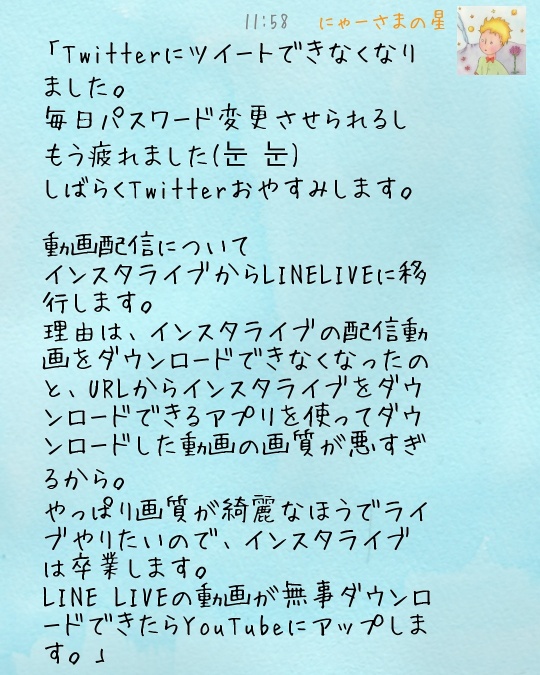 11:58 にゃーさまの星
「Twitterにツイートできなくなり
ました。
毎日パスワード変更させられるし
もう疲れました(눈 눈)
しばらくTwitterおやすみします。
動画配信について
インスタライブからLINELIVEに移
行します。
理由は、インスタライブの配信動
画をダウンロードできなくなったの
と、URLからインスタライブをダウ
ンロードできるアプリを使ってダウ
ンロードした動画の画質が悪すぎ
るから。
やっぱり画質が綺麗なほうでライ
ブやりたいので、インスタライブ
は卒業します。
LINE LIVEの動画が無事ダウンロ
ードできたらYouTubeにアップしま
す。」